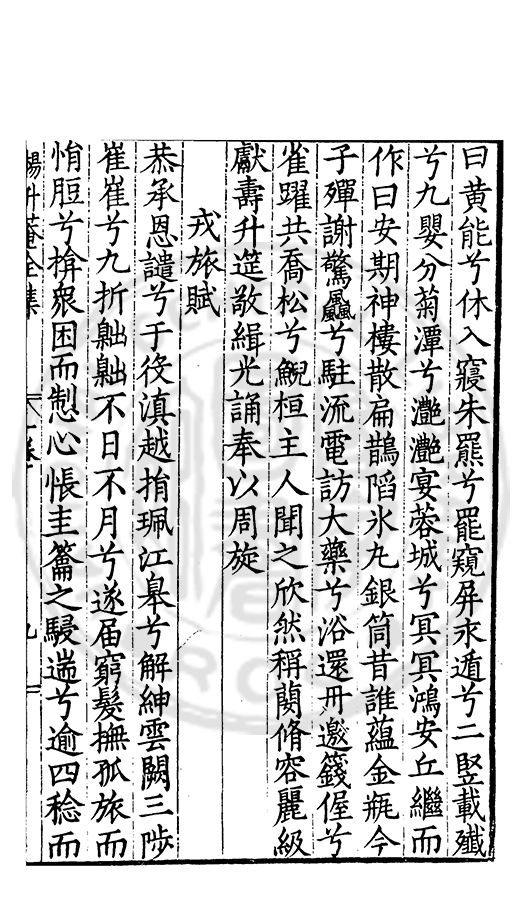 曰黃能兮休入寢朱羆兮罷窺屏永遁兮二豎載殲
兮九嬰分菊潭兮灔灔宴蓉城兮冥冥鴻安丘繼而
作曰安期神樓散扁鵲䧟氷丸銀筒昔誰蘊金瓶今
子殫謝驚飍兮駐流電訪大藥兮浴還丹邀籛偓兮
雀躍共喬松兮鯢桓主人聞之欣然稱蘭脩容麗級
獻壽升筵敬緝光誦奉以周旋
戎旅賦
恭承恩譴兮于役滇越捐珮江皋兮解紳雲闕三陟
崔崔兮九折𦘕𦘕不日不月兮遂屆窮髮撫孤旅而
悁脰兮揜衆困而愬心悵圭籥之駸遄兮逾四稔而
楊升菴全集